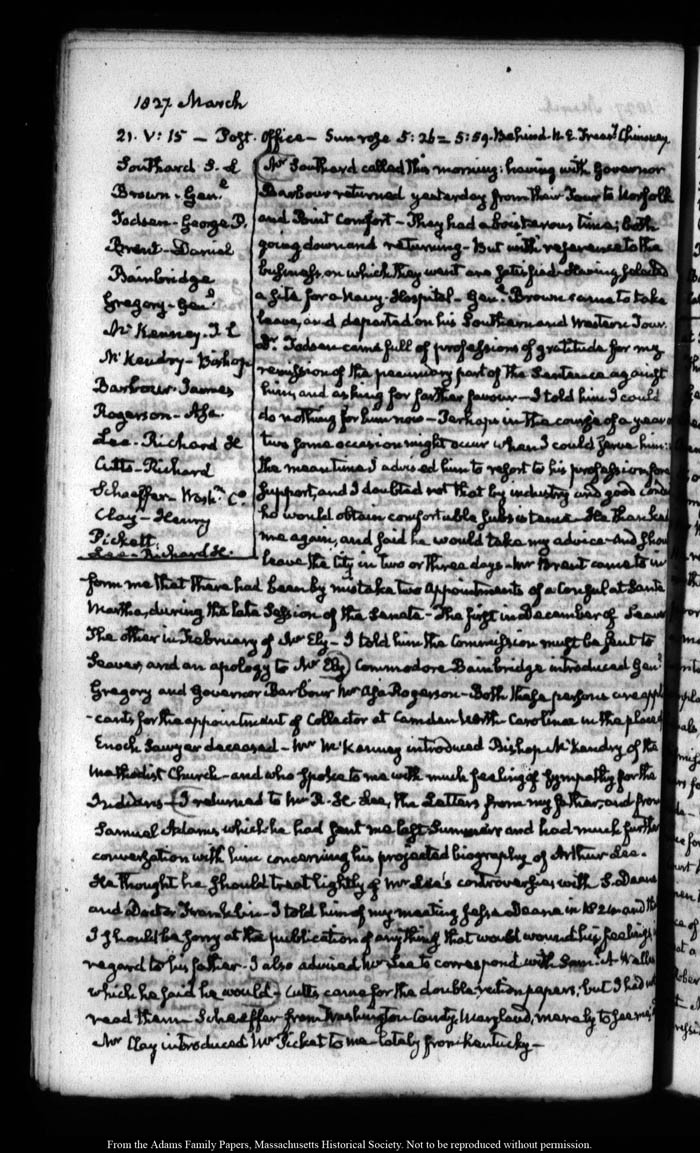 1827 March
21. V: 15 — Post. Office — Sun rose 5: 26 = 5: 59. Behind N. E Treasy Chimney.
Southard. S. L
Brown - Genl
Todson - George P.
Brent - Daniel
Bainbridge
Gregory - Genl
McKenney. T. L
McKendry - Bishop
Barbour. James
Rogerson - Asa
Lee - Richard H
Cutts - Richard
Schaeffer - Washn Co.
Clay - Henry
Pickett
Lee - Richard H.
Mr Southard called this morning: having with Governor
Barbour returned yesterday from their Tour to Norfolk
and Point Comfort — They had a boisterous time, both
going down and returning — But with reference to the
business, on which they went are satisfied. Having selected
a site for a Navy-Hospital — Genl Brown came to take
leave, and departed on his Southern and Western Tour.
Dr. Todson came full of professions of gratitude for my
remission of the pecuniary part of the Sentence against
him, and asking for farther favour — I told him I could
do nothing for him now — Perhaps in the course of a year or
two some occasion might occur when I could serve him:
the mean time I advised him to resort to his profession for
support, and I doubted not that by industry and good
he would obtain comfortable subsistence — He thanked
me again, and said he would take my advice - And
leave the City in two or three days — Mr Brent came to in
form me that there had been by mistake two Appointments of a Consul at Santa
Martha, during the late Session of the Senate — The first in December of Seaver
The other in February of Mr Ely — I told him the Commission must be sent to
Seaver, and an apology to Mr Ely) Commodore Bainbridge introduced Genl
Gregory and Governor Barbour Mr Asa Rogerson — Both these persons are appli
-cants for the appointment of Collector at Camden North-Carolina in the place of
Enoch Sawyer deceased — Mr McKenney introduced Bishop McKendry of the
Methodist Church — and who spoke to me with much feeling of sympathy for the
Indians — I returned to Mr R. H. Lee, the Letters from my father, and from
Samuel Adams, which he had sent me last Summer and had much further
conversation with him concerning his projected biography of Arthur Lee.
He thought he should treat lightly of Mr Lee's controversies with S. Deane
and Doctor Franklin — I told him of my meeting Jesse Deane in 1824 and
I should be sorry at the publication of any thing that would wound his feelings in
regard to his father. I also advised Mr Lee to correspond with Saml A. Wells
which he said he would — Cutts came for the double-ration papers, but I had not
read them — Schaeffer from Washington County, Maryland, merely to see me,
Mr Clay introduced Mr Picket to me — lately from Kentucky —
From the Adams Family Papers, Massachusetts Historical Society. Not to be reproduced without permission.